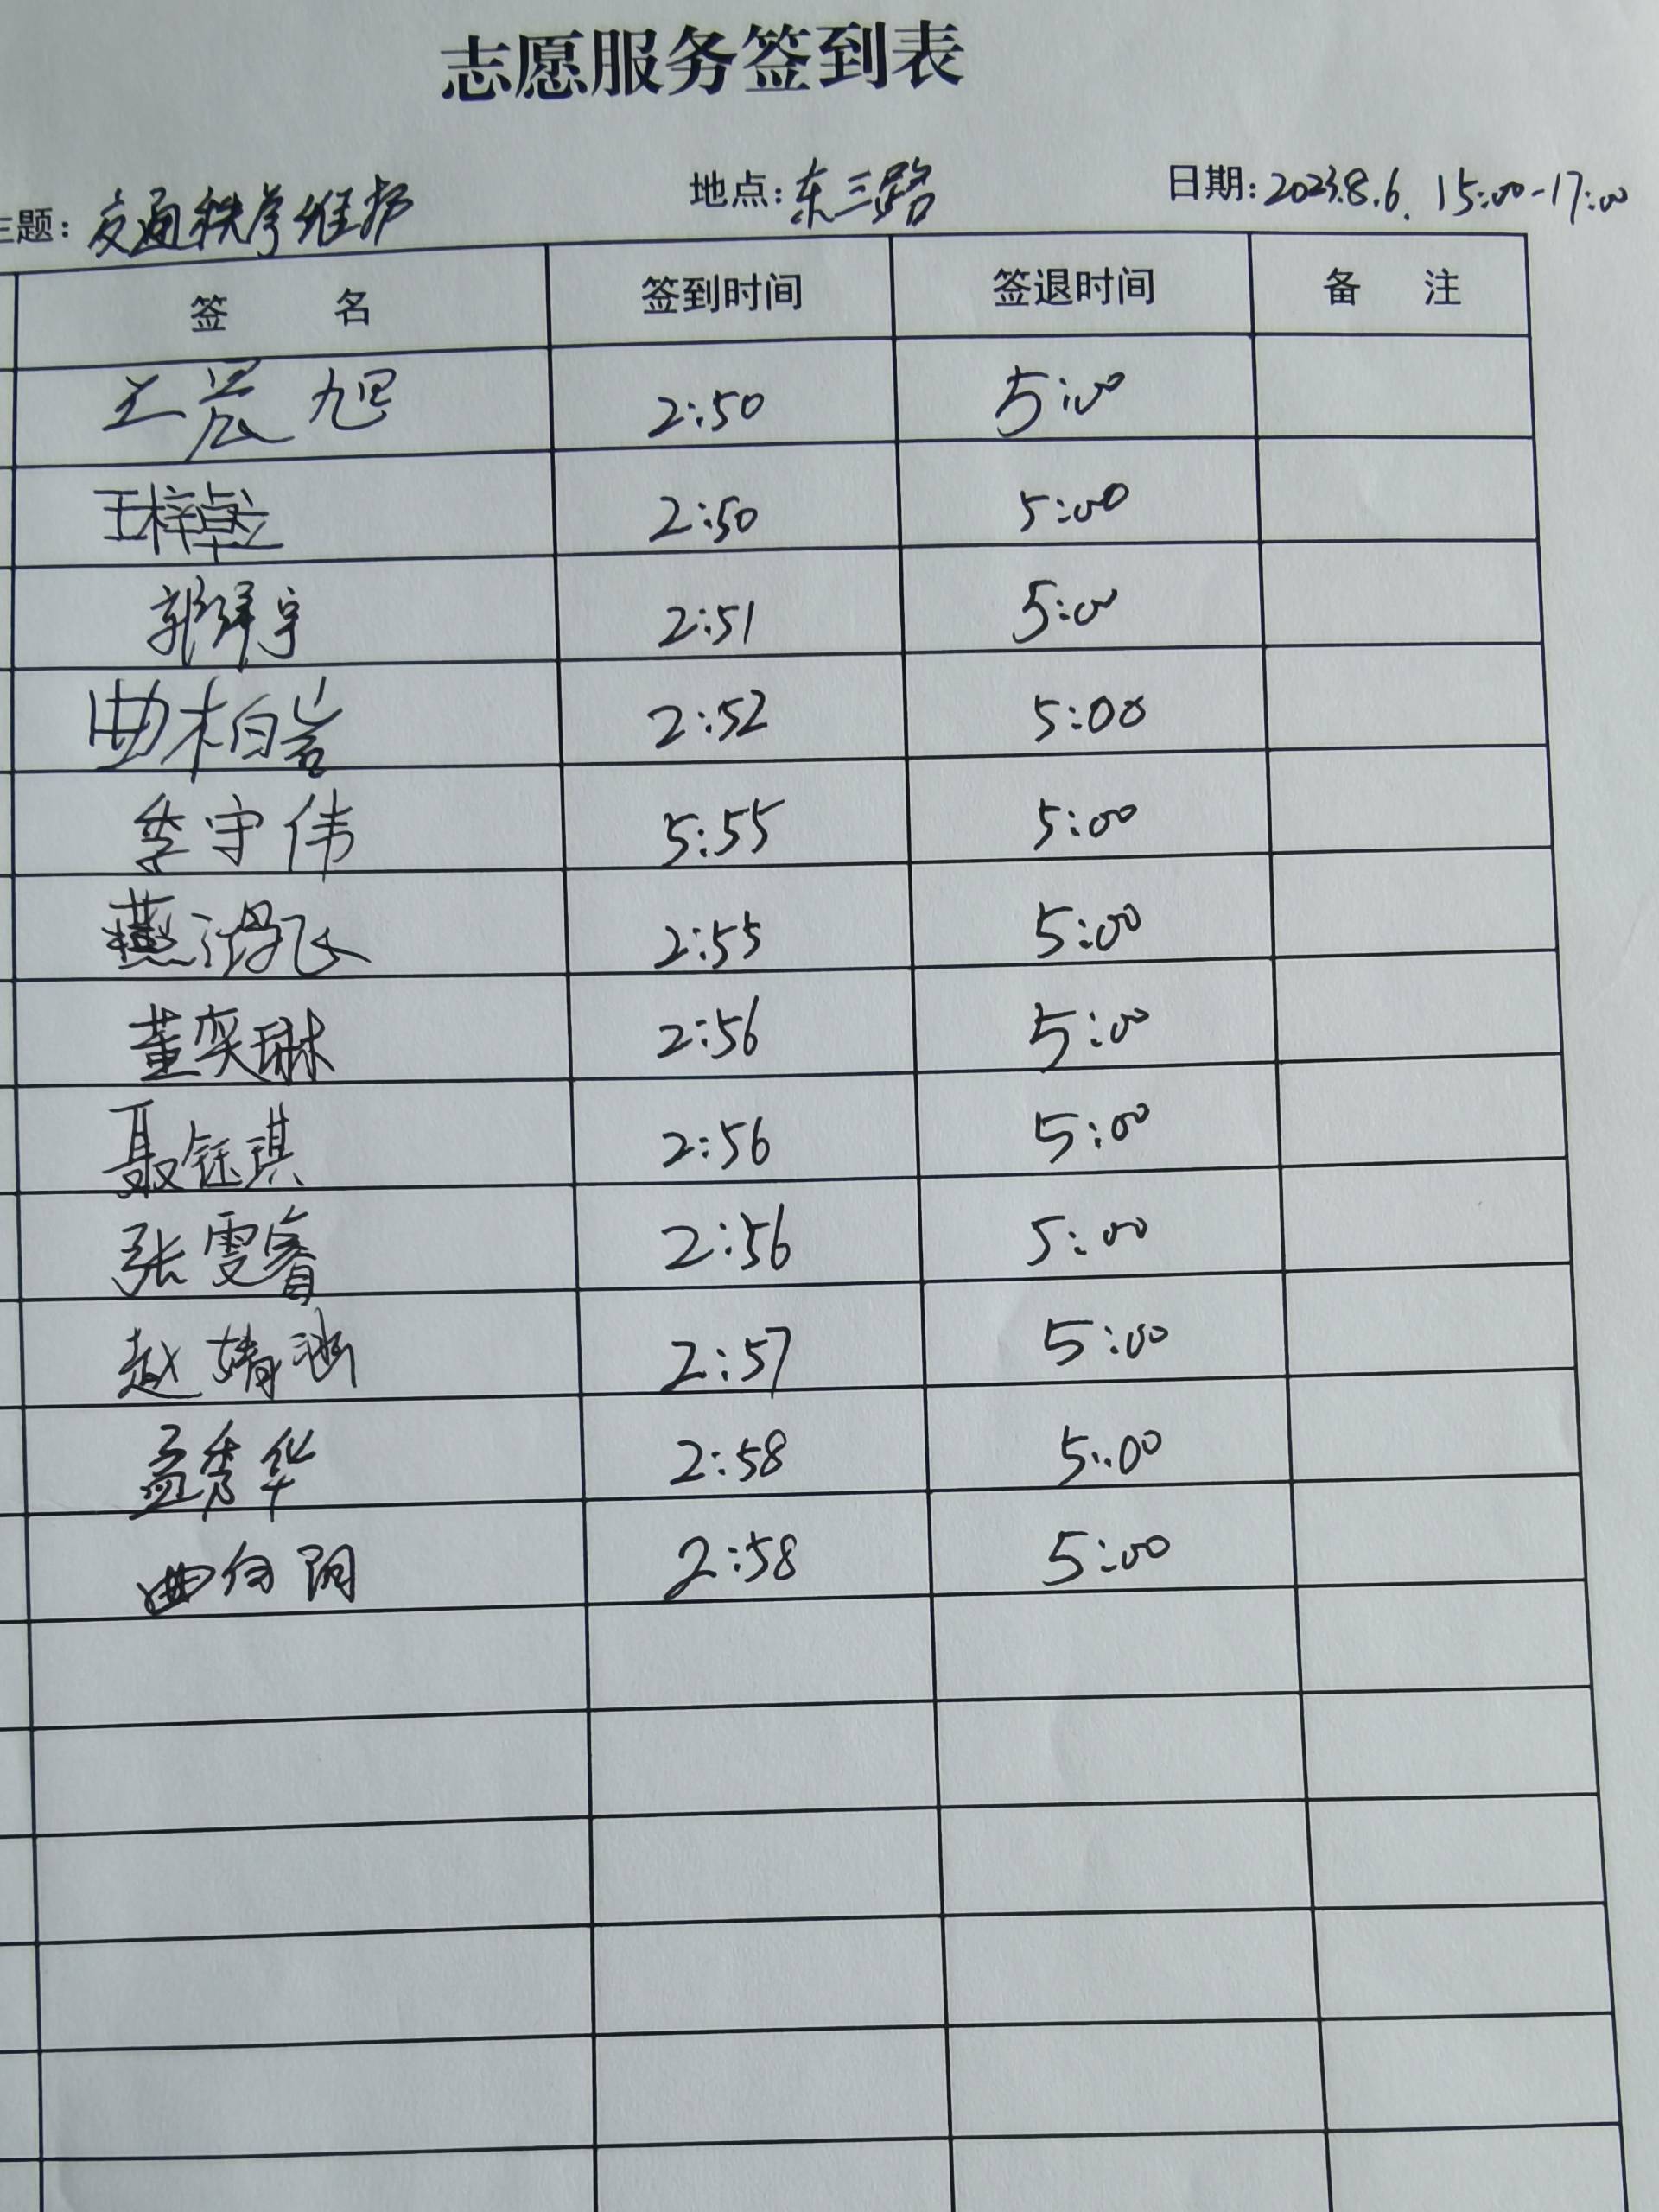 志愿服务签到表
主题：交通秩序维护 地点：东三路 日期：2023.8.6. 15:00-17:00
签 名 签到时间 签退时间 备 注
王晨旭 2:50 5:00
王梓 2:50 5:00
郭洋宇 2:51 5:00
曲柏岩 2:52 5:00
李守伟 5:55 5:00
燕鸿飞 2:55 5:00
董奕琳 2:56 5:00
聂钰琪 2:56 5:00
张雯睿 2:56 5:00
赵婧涵 2:57 5:00
孟秀华 2:58 5:00
曲向阳 2:58 5:00